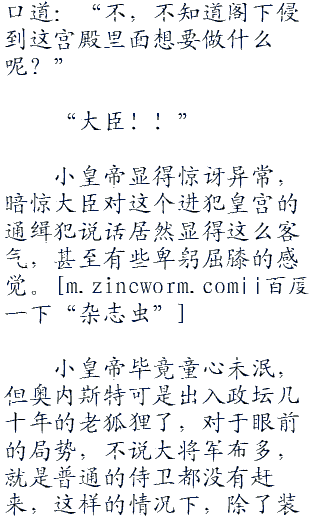 口道：“不，不知道阁下侵
到这宫殿里面想要做什么
呢？”
“大臣！！”
小皇帝显得惊讶异常，
暗惊大臣对这个进犯皇宫的
通缉犯说话居然显得这么客
气，甚至有些卑躬屈膝的感
觉。[m.zincworm.comii百度
一下“杂志虫”]
小皇帝毕竟童心未泯，
但奥内斯特可是出入政坛几
十年的老狐狸了，对于眼前
的局势，不说大将军布多，
就是普通的侍卫都没有赶
来，这样的情况下，除了装